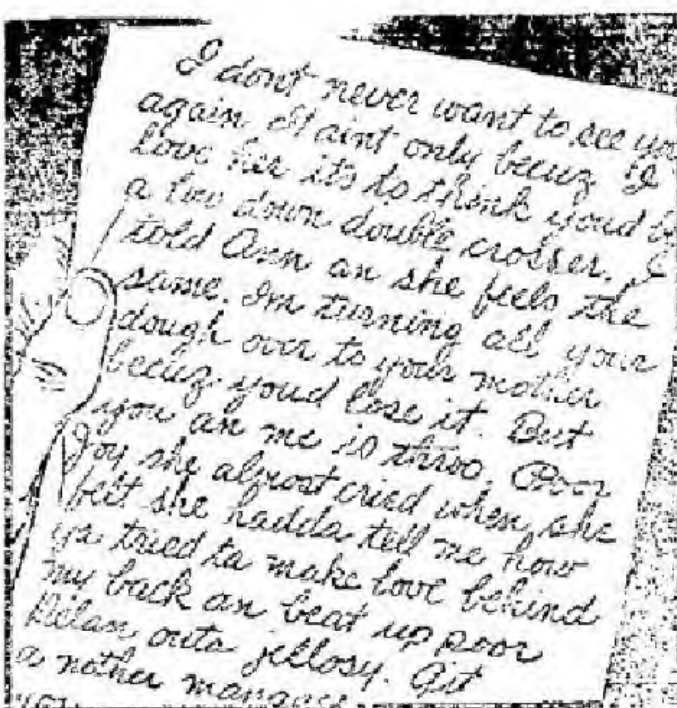 I dont never want to see you
again. It aint only becuz I
Love her its to think youd be
a low down double crosser. I
told Ann an she feels the
same. Im turning all your
dough over to your mother
becuz youd lose it. But
you an me is thro. Poor
Joy she almost cried when she
felt she hadda tell me how
ya tried ta make love behind
my back an beat up poor
outa jellosy. Git
a nother manager
you.